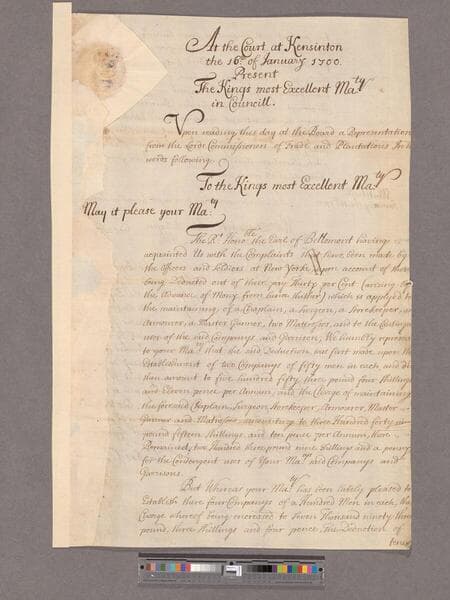 At the Court at Kensinton
the 16th of January 1700.
Present
The Kings most Excellent Maty
in Councill.
Upon reading this day at the Board a Representation
from the Lords Commissioners of Trade and Plantations In the
words following.
To the Kings most Excellent Maty
May it please your Maty
The Rt Honoble the Earl of Bellomont having
acquainted Us with the Complaints that have been made by
the Officers and Soldiers at New Yorke upon account of there
being Deducted out of their pay Thirty per Cent (arising by
the Advance of Mony from hence thither) which is applyed to
the maintaining of a Chaplain, a Surgeon, a Storekeeper, an
Armourer, a Master Gunner, two Matrosses, and to the Contingent
uses of the said Companys and Garrison, We humbly represent
to your Maty that the said Deduction was first made upon the
Establishment of two Companys of fifty men in each, and did
then amount to five hundred fifty three pound four Shillings
and Eleven pence per Annum, and the Charge of maintaining
the foresaid Chaplain, Surgeon, Storekeeper, Armourer, Master
Gunner and Matrosses amounting to three Hundred forty
pound fifteen Shillings and ten pence per Annum, there
Remained, two Hundred three pound nine Shillings and a penny
for the Contengent uses of Your Matys said Companys and
Garrisons.
But Whereas your Maty has been lately pleased to
Establish there four Companys of a Hundred Men in each, the
Charge whereof being encreased to Seven Thousand ninety three
pound, three Shillings and four pence The Deduction of